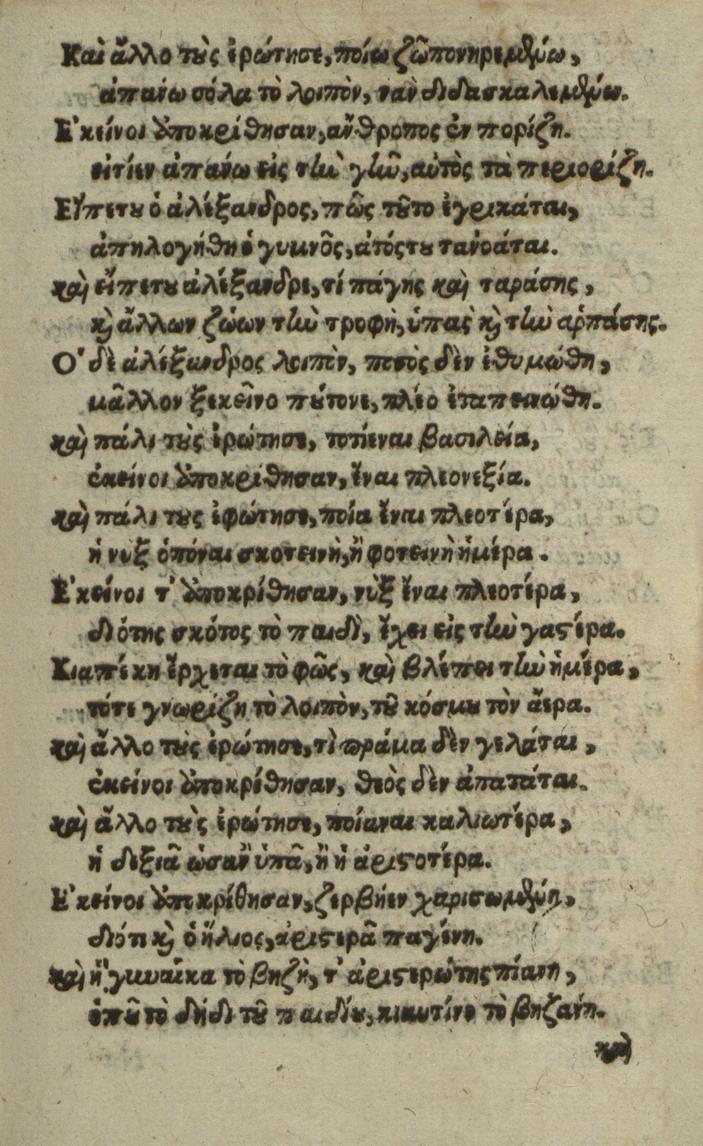 Καὶ ἄλλο τοὺς ἐρώτησε, ποίω ζῶπονηρεμθύω,
ἀπανω σόλα τὸ λοιπὸν, νανδιδασκαλεμθύω.
Ε᾿κείνοι ὑποκρίθησαν, ἄνθροπος ἐν πορίζη.
εἰτίεν ἀπανω εἰς τὴν γῆν, αὐτὸς τὰ περιορίζη.
Εἴπετου ὁ ἀλέξανδρος, πῶς τοῦτο ἐγρικάται,
ἀπηλογήθη ὁ γυμνὸς, ἀτόςτου τανοάται.
καὶ εἴπετου ἀλέξανδρε, τί πάγης καὶ ταράσης,
καὶ ἄλλων ζώων τὴν τροφὴ, ὑπας καὶ τὴν ἁρπάσης.
Ο᾿ δὲ ἀλέξανδρος λοιπὸν, ποσὸς δὲν ἐθυμώθη,
μᾶλλον ξεκεῖνο πούτονε, πλέο ἐταπεινώθη.
καὶ πάλι τοὺς ἐρώτησε, τοτίεναι βασιλεία,
ἐκείνοι ὑποκρίθησαν, ἔναι πλεονεξία.
καὶ πάλι τους ἐφώτησε, ποία ἔναι πλεοτέρα,
ἡ νυξ ὁπόναι σκοτεινὴ, ἢ φοτεινὴ ἡμέρα.
Ε᾿κείνοι τ᾿ ὑποκρίθησαν, νὺξ ἔναι πλεοτέρα,
διότης σκότος τὸ παιδὶ, ἔχει εἰς τὴν γαστέρα.
Κιαπέκη ἔρχεται τὸ φῶς, καὶ βλέπει τὴν ἡμέρα,
τότε γνωρίζη τὸ λοιπὸν, τοῦ κόσμου τὸν ἄερα.
καὶ ἄλλο τοὺς ἐρώτησε, τὶ πράμα δὲν γελάται,
ἐκείνοι ὑποκρίθησαν, θεὸς δὲν ἀπατάται.
καὶ ἄλλο τοὺς ἐρώτησε, ποίαναι καλιωτέρα,
ἡ δεξιᾶ ὡσαν ὑπᾶ, ἢ ἡ ἀριστοτέρα.
Ε᾿κείνοι ὑποκρίθησαν, ζερβήεν χαρισωμθύη,
διότι καὶ ὁ ἥλιος, ἀριστερᾶ παγένη.
καὶ ἡ γυναίκα τὸ βηζὴ, τ᾿ ἀριστερώτης πίανη,
ὁποῦ τὸ δήδι τοῦ παιδίου, κικυτίνο τὸ βηζανη.
καὶ